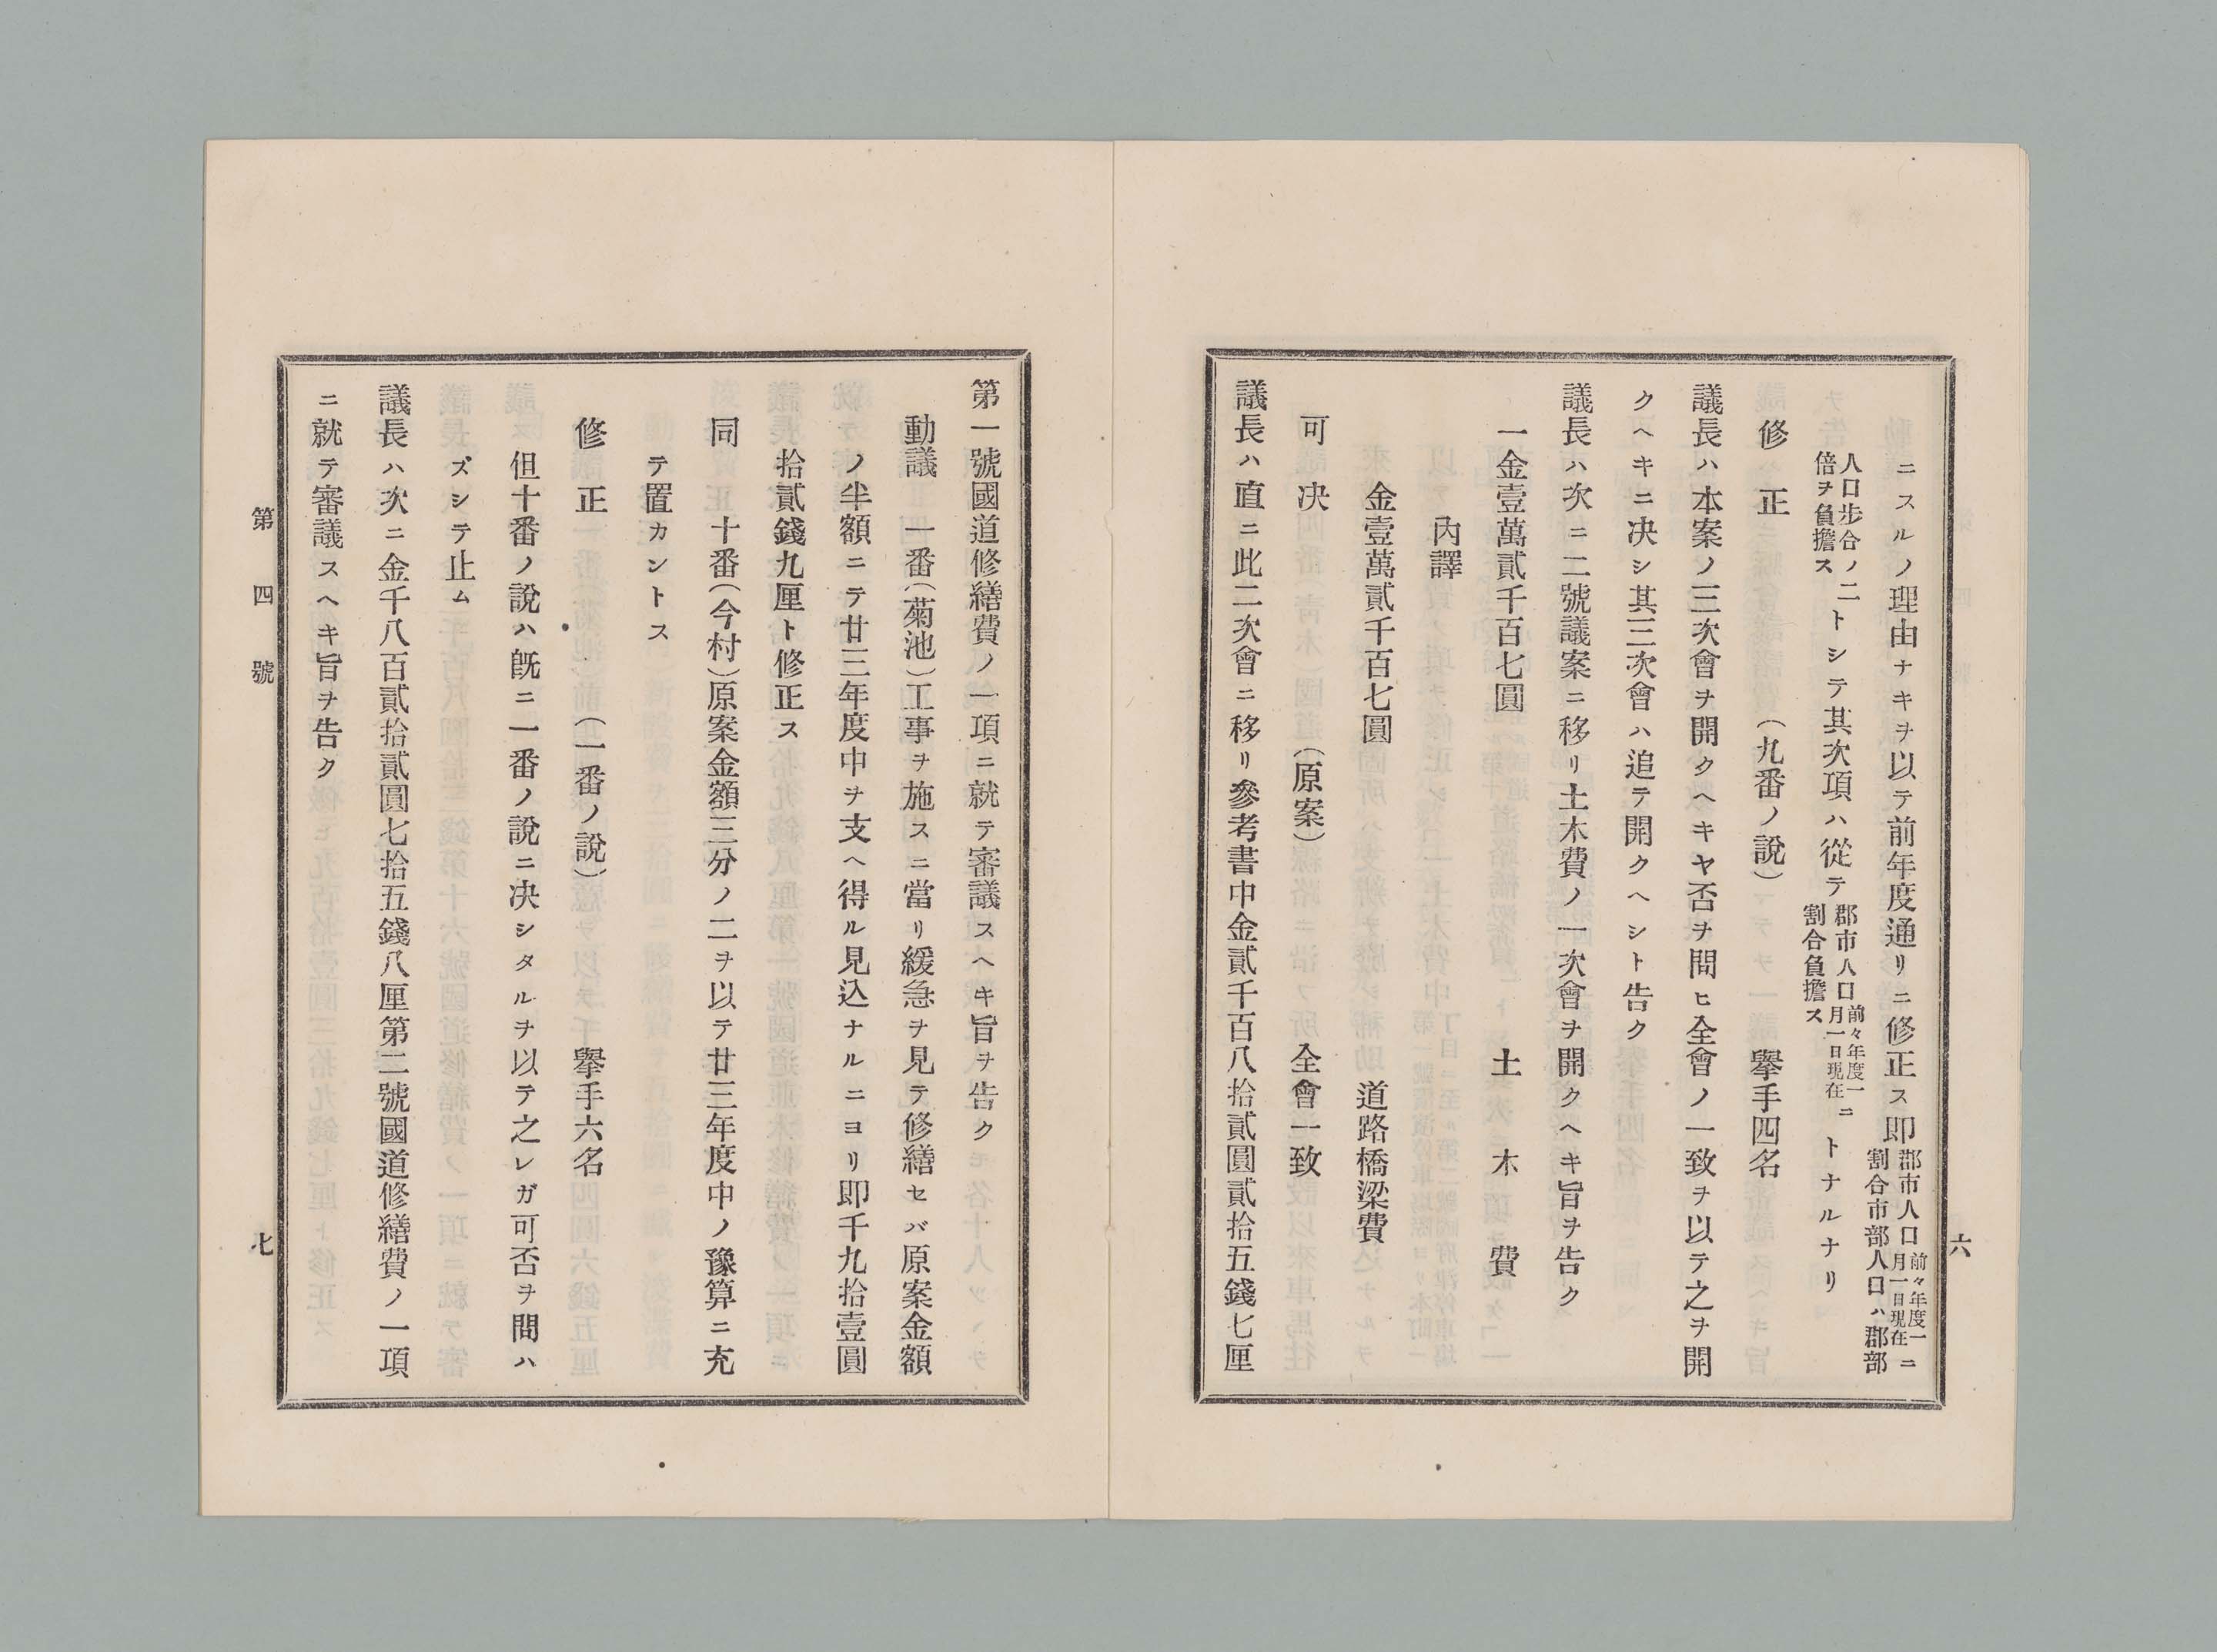 ニスルノ理由ナキヲ以テ前年度通リニ修正ス即郡市人口前々年度一月一日現在ニ割合市部人口ハ郡部
人口歩合ノ二倍ヲ負擔ストシテ其次項ハ從テ郡市人口前々年度一月一日現在ニ割合負擔ストナルナリ
修正 (九番ノ說) 擧手四名
議長ハ本案ノ三次會ヲ開クヘキヤ否ヲ問ヒ全會ノ一致ヲ以テ之ヲ開
クヘキニ决シ其三次會ハ追テ開クヘシト告ク
議長ハ次ニ二號議案ニ移リ土木費ノ一次會ヲ開クヘキ旨ヲ告ク
一金壹萬貳千百七圓 土木費
內譯
金壹萬貳千百七圓 道路橋梁費
可决 (原案) 全會一致
議長ハ直ニ此二次會ニ移リ參考書中金貳千百八拾貳圓貳拾五錢七厘
六
第一號國道修繕費ノ一項ニ就テ審議スヘキ旨ヲ告ク
動議 一番(菊池)工事ヲ施スニ當リ緩急ヲ見テ修繕セバ原案金額
ノ半額ニテ廿三年度中ヲ支ヘ得ル見込ナルニヨリ即千九拾壹圓
拾貳錢九厘ト修正ス
同 十番(今村)原案金額三分ノ二ヲ以テ廿三年度中ノ豫算ニ充
テ置カントス
修正 (一番ノ說) 擧手六名
但十番ノ說ハ旣ニ一番ノ說ニ决シタルヲ以テ之レガ可否ヲ問ハ
ズシテ止ム
議長ハ次ニ金千八百貳拾貳圓七拾五錢八厘第二號國道修繕費ノ一項
ニ就テ審議スヘキ旨ヲ告ク
第四號
七